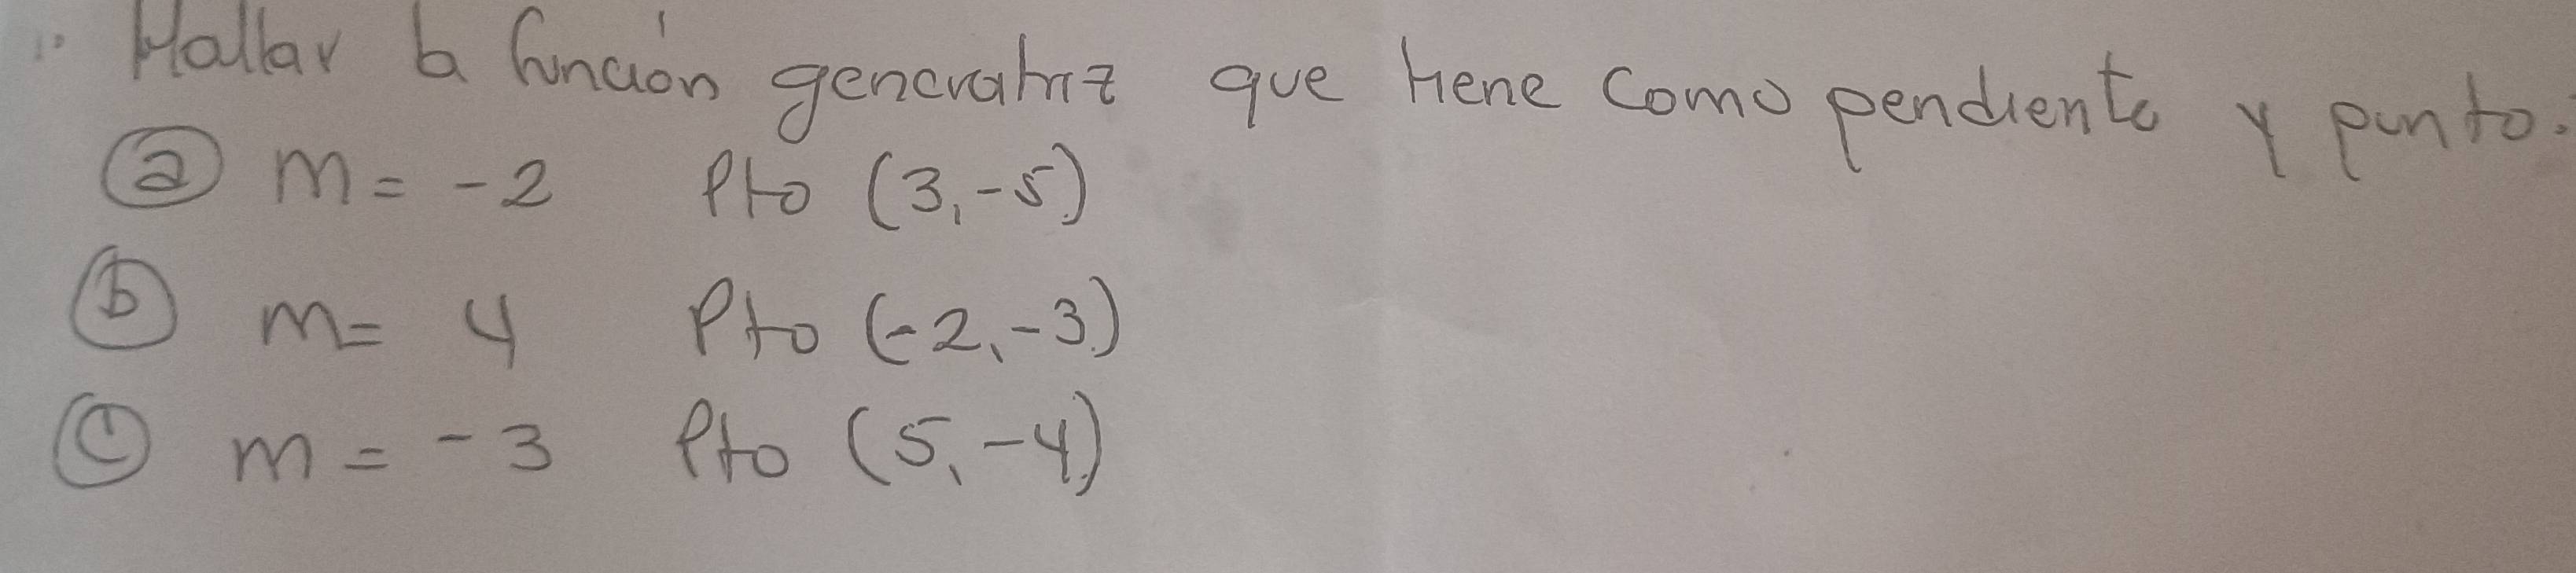 1. Hallar la función generatriz que tiene como pendiente y punto:
(a) m = -2 Pto (3,-5)
(b) m= 4 Pto (-2,-3)
(c) m = -3 Pto (5,-4)